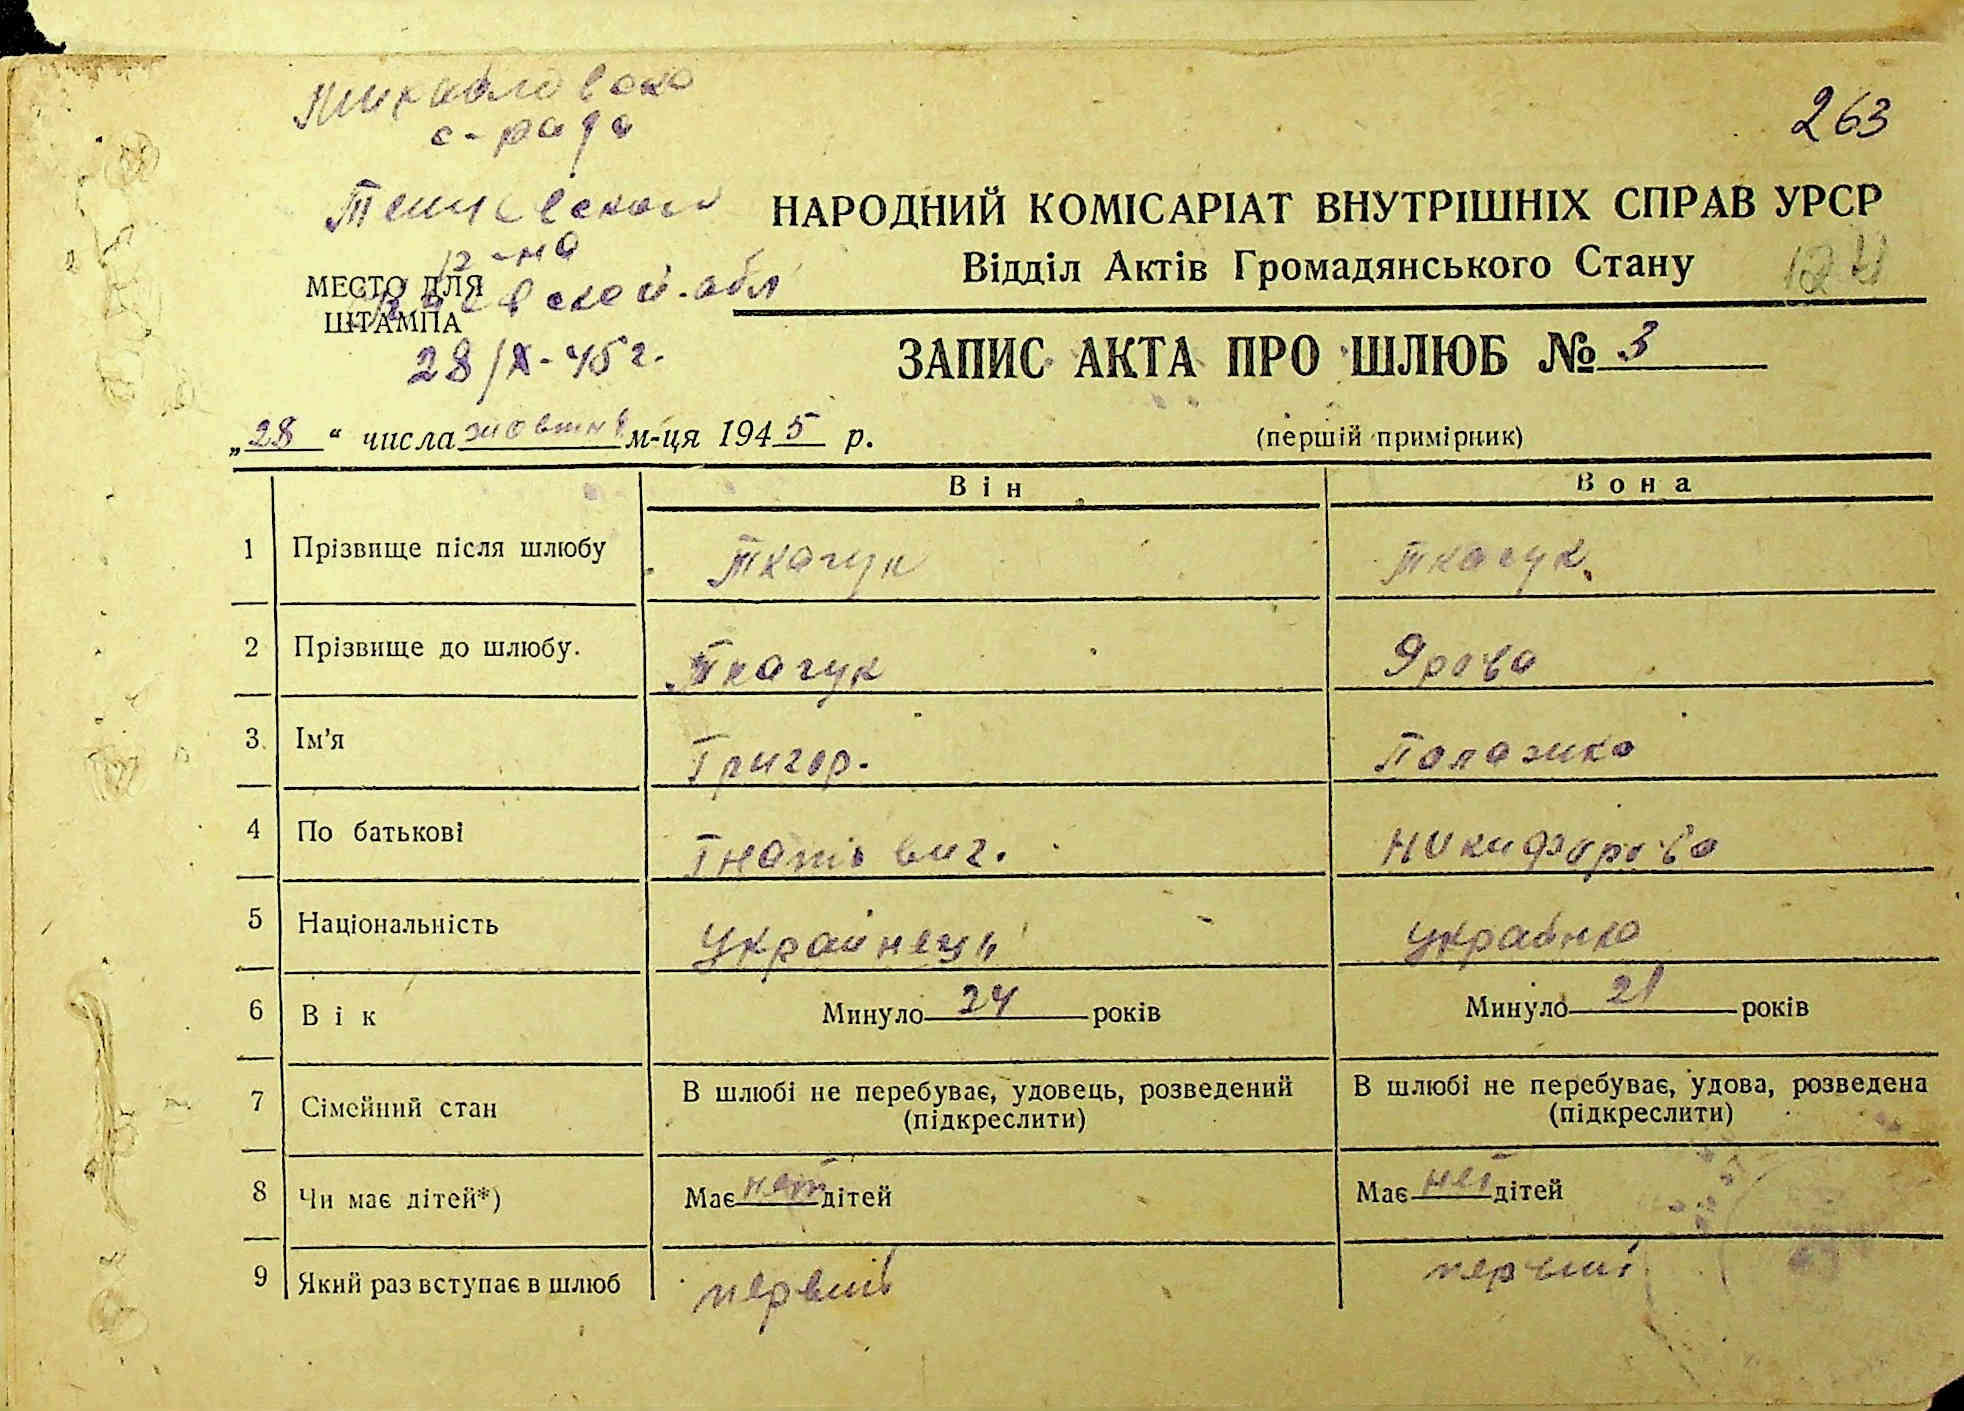 Михайловска
с-рада
263
Тетиевского
НАРОДНИЙ КОМІСАРІАТ ВНУТРІШНІХ СПРАВ УРСР
р-на
Відділ Актів Громадянського Стану
124
МЕСТО ДЛЯ
Киевской обл
ШТАМПА
28/X-45 г.
ЗАПИС АКТА ПРО ШЛЮБ № 3
„28“ числа жовтня м-ця 1945 р.
(першій примірник)
Він Вона
1 Прізвище після шлюбу Ткачук Ткачук
2 Прізвище до шлюбу. Ткачук Ярова
3 Ім'я Григор. Палажка
4 По батькові Гнатович. Никифорова
5 Національність Украинець Украинка
6 Вік Минуло 24 років Минуло 21 років
7 Сімейний стан В шлюбі не перебуває, удовець, розведений В шлюбі не перебуває, удова, розведена
(підкреслити) (підкреслити)
8 Чи має дітей*) Має нет дітей Має нет дітей
9 Який раз вступає в шлюб первий первий